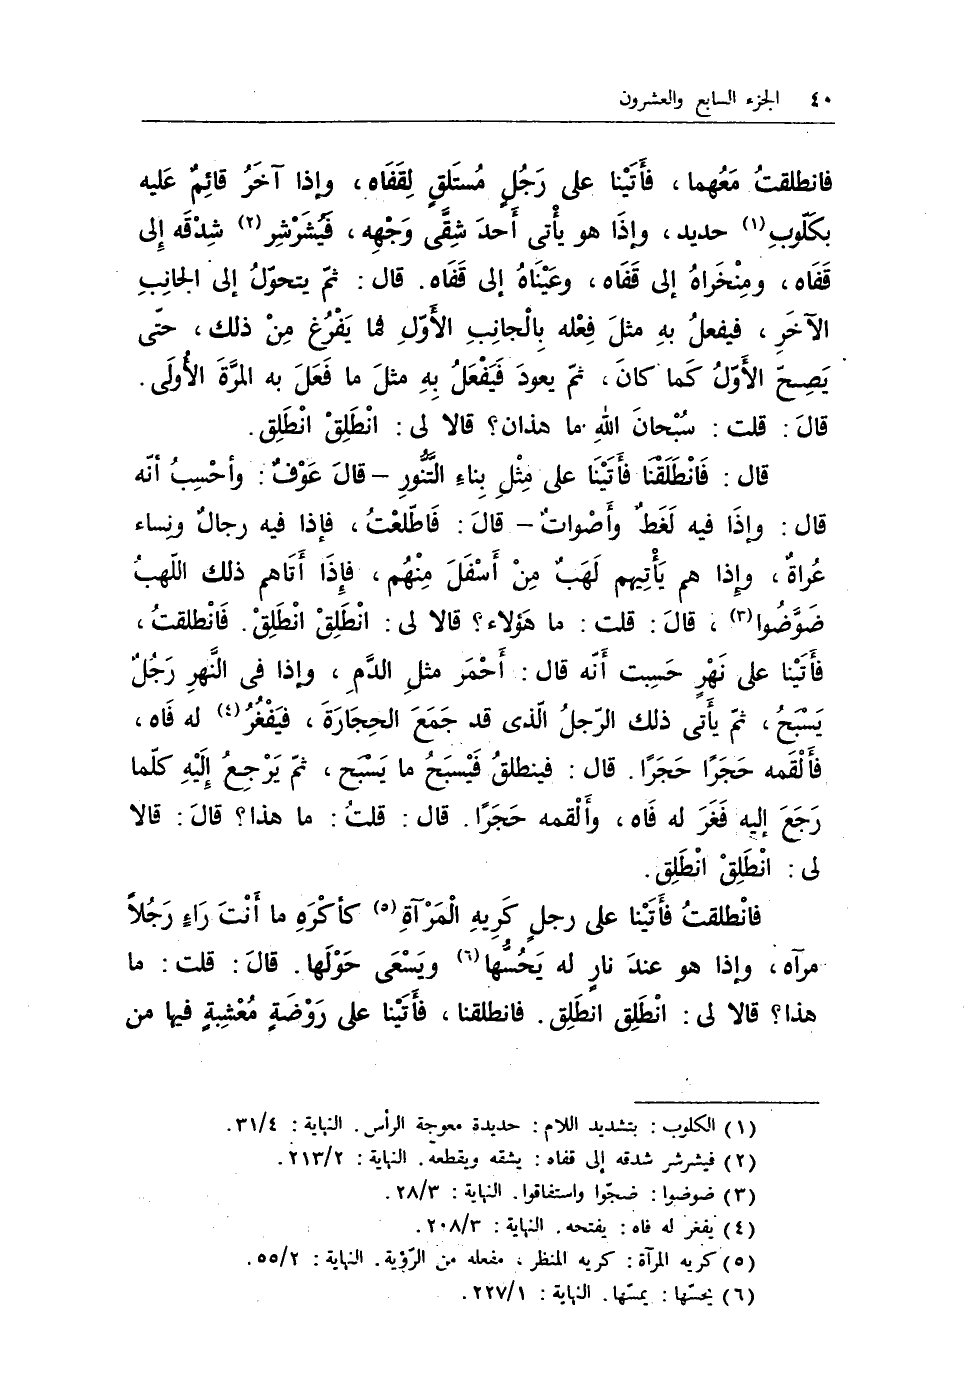 ٤٠ الجزء السابع والعشرون
فانطلقتُ مَعَهما، فَأَتَيْنا على رَجُلٍ مُستَلقٍ لِقَفَاه، وإذا آخَرُ قائِمٌ عَليه
بكَلّوبِ(١) حديد، وإذَا هو يأْتى أَحدَ شِقَّى وَجْهِه، فَيُشَرْشِر(٢) شِدْقَه إِلى
قَفَاه، ومِنْخَراهُ إلى قَفَاه، وعَيْنَاهُ إلى قَفَاه. قال: ثمّ يتحوّلُ إلى الجانِبِ
الآخَرِ، فيفعلُ بهِ مثلَ فِعْله بِالْجانِبِ الأَوّلِ فما يَفْرُغ مِنْ ذلك، حتّى
يَصِحّ الأَوّلُ كَما كانَ، ثمّ يعودَ فَيَفْعَلُ بِهِ مثلَ ما فَعَلَ به المَرَّةَ الأُولَى.
قالَ: قلت: سُبْحانَ اللهِ ما هذان؟ قالا لى: انْطَلِقْ انْطَلِق.
قال: فَانْطَلَقْنَا فَأَتَيْنَا على مِثْلِ بِناءِ التَّنُّورِ –قالَ عَوْفٌ: وأحْسِبُ أنّه
قال: وإِذَا فيه لَغَطٌ وأَصْواتٌ– قالَ: فَاطّلعْتُ، فإذا فيه رجالٌ ونِساء
عُراةٌ، وإِذا هم يَأْتِيهم لَهَبٌ مِنْ أَسْفَلَ مِنْهُم، فإِذَا أَتَاهم ذلك اللّهبُ
ضَوَّضُوا(٣)، قالَ: قلت: ما هَؤلاء؟ قالا لى: انْطَلِقْ انْطَلِقْ. فَانْطلقتُ،
فأَتَيْنا على نَهْرٍ حَسِبت أَنّه قال: أَحْمَرَ مثلِ الدَّمِ، وإذا فى النَّهرِ رَجُلٌ
يَسْبَحُ، ثمّ يأْتى ذلك الرّجلُ الّذى قد جَمَعَ الحِجَارَةَ، فَيَفْغُرُ(٤) له فَاه،
فأَلْقَمه حَجَرًا حَجَرًا. قال: فينطلقُ فَيْسبَحُ ما يَسْبَح، ثمّ يَرْجعُ إلَيْهِ كلّما
رَجَعَ إليه فَغَرَ له فَاه، وأَلْقمه حَجَرًا. قال: قلتُ: ما هذا؟ قالَ: قالا
لى: انْطَلِقْ انْطَلِق.
فانْطلقتُ فأَتَيْنا على رجلٍ كَرِيهِ الْمَرْآةِ(٥) كأكْرَهِ ما أَنْتَ رَاءٍ رَجُلاً
مرآه، وإذا هو عندَ نارٍ له يَحُشُّها(٦) ويَسْعَى حَوْلَها. قالَ: قلت: ما
هذا؟ قالا لى: انْطَلِق انطَلِق. فانطلقنا، فأَتَيْنا على رَوْضَةٍ مُعْشِبةٍ فيها من
(١) الكلوب: بتشديد اللام: حديدة معوجة الرأس. النهاية: ٣١/٤.
(٢) فيشرشر شدقه إلى قفاه: يشقه ويقطعه. النهاية: ٢١٣/٢.
(٣) ضوضوا: ضجّوا واستفاقوا. النهاية: ٢٨/٣.
(٤) يفغر له فاه: يفتحه. النهاية: ٢٠٨/٣.
(٥) كريه المرآة: كريه المنظر، مفعله من الرّؤية. النهاية: ٥٥/٢.
(٦) يحسّها: يمسّها. النهاية: ٢٢٧/١.